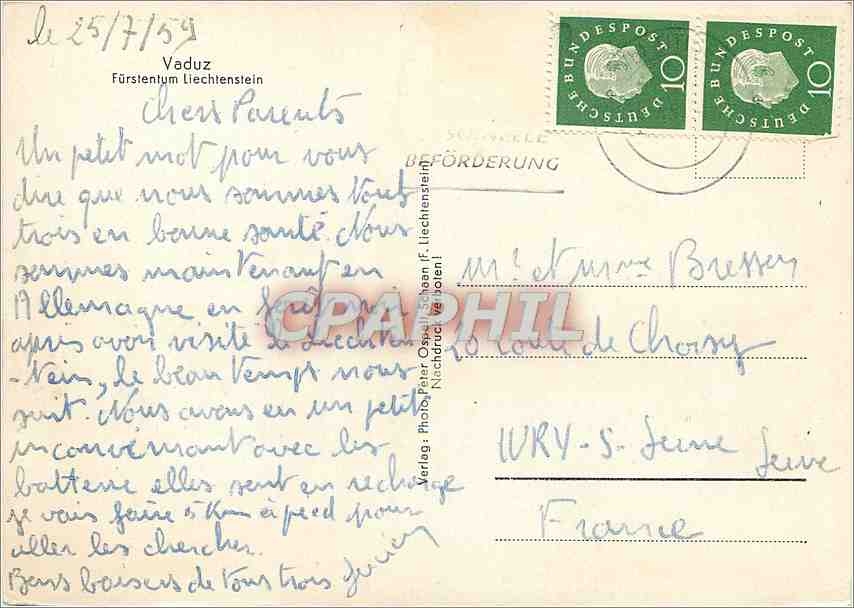 le 25/7/59
Vaduz
Fürstentum Liechtenstein
Chers Parents
Un petit mot pour vous
dire que nous sommes tous
trois en bonne santé. Nous
sommes maintenant en
Allemagne en
après avoir visité le Liechten
-stein, le beau temps nous
suit. Nous avons eu un petit
inconvénient avec les
batterie elles sont en recharge
je vais faire 5 Km à pied pour
aller les chercher.
Bons baisers de tous trois
Verlag: Photo Peter Ospelt, Schaan (F. Liechtenstein)
Nachdruck verboten!
SCHNELLE
BEFÖRDERUNG
DEUTSCHE BUNDESPOST 10
DEUTSCHE BUNDESPOST 10
Mr et Mme Bresson
route de Choisy
IVRY-S-Seine Seine
France
CPAPHIL